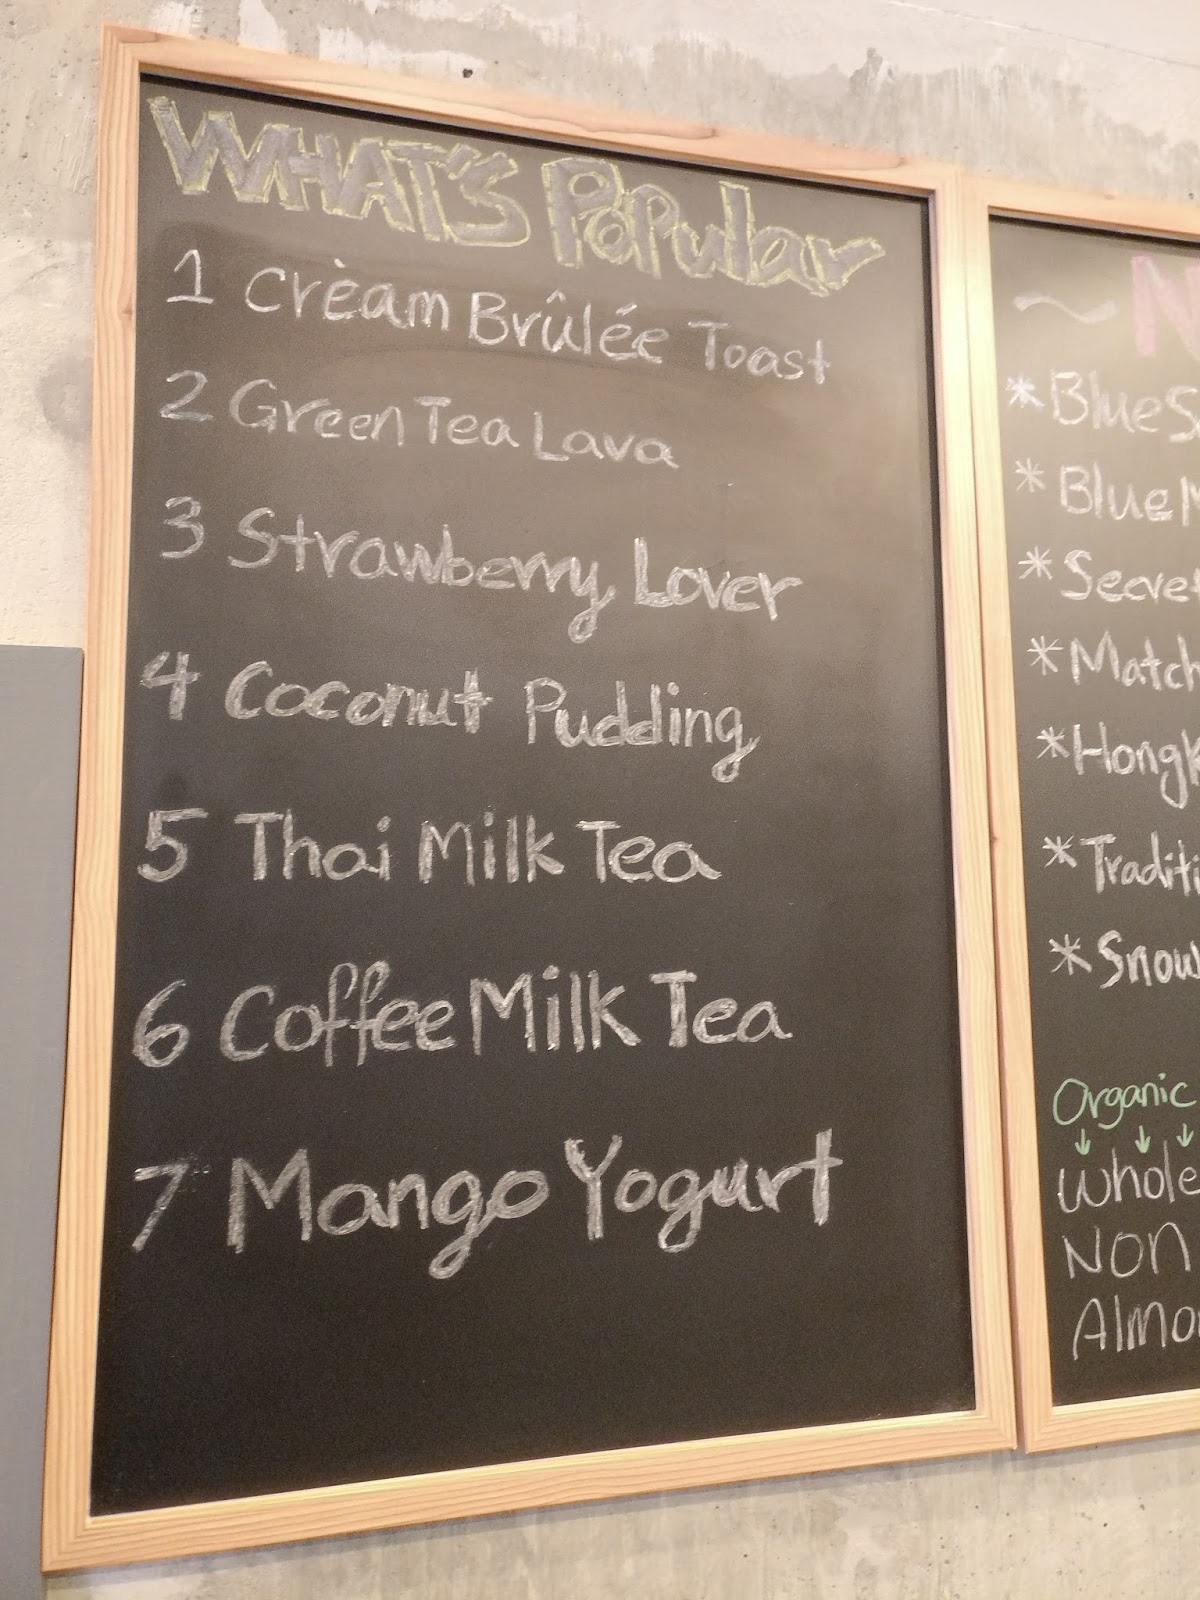 WHAT'S Popular
1 Crèam Brûlée Toast
2 Green Tea Lava
3 Strawberry Lover
4 Coconut Pudding
5 Thai Milk Tea
6 Coffee Milk Tea
7 Mango Yogurt
* Blue
* Blue
*
*
*
*
* Snow
Organic
Whole
NON